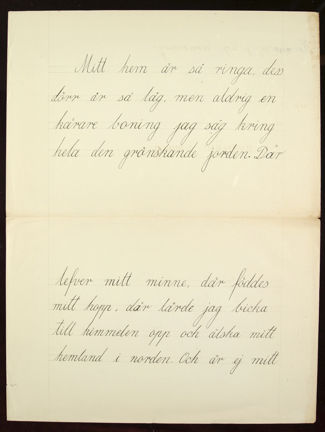 Mitt hem är så ringa, dess
dörr är så låg, men aldrig en
kärare boning jag såg kring
hela den grönskande jorden. Där
lefver mitt minne, där föddes
mitt hopp, där lärde jag bicka
till himmelen opp och älska mitt
hemland i norden. Och är ej mitt